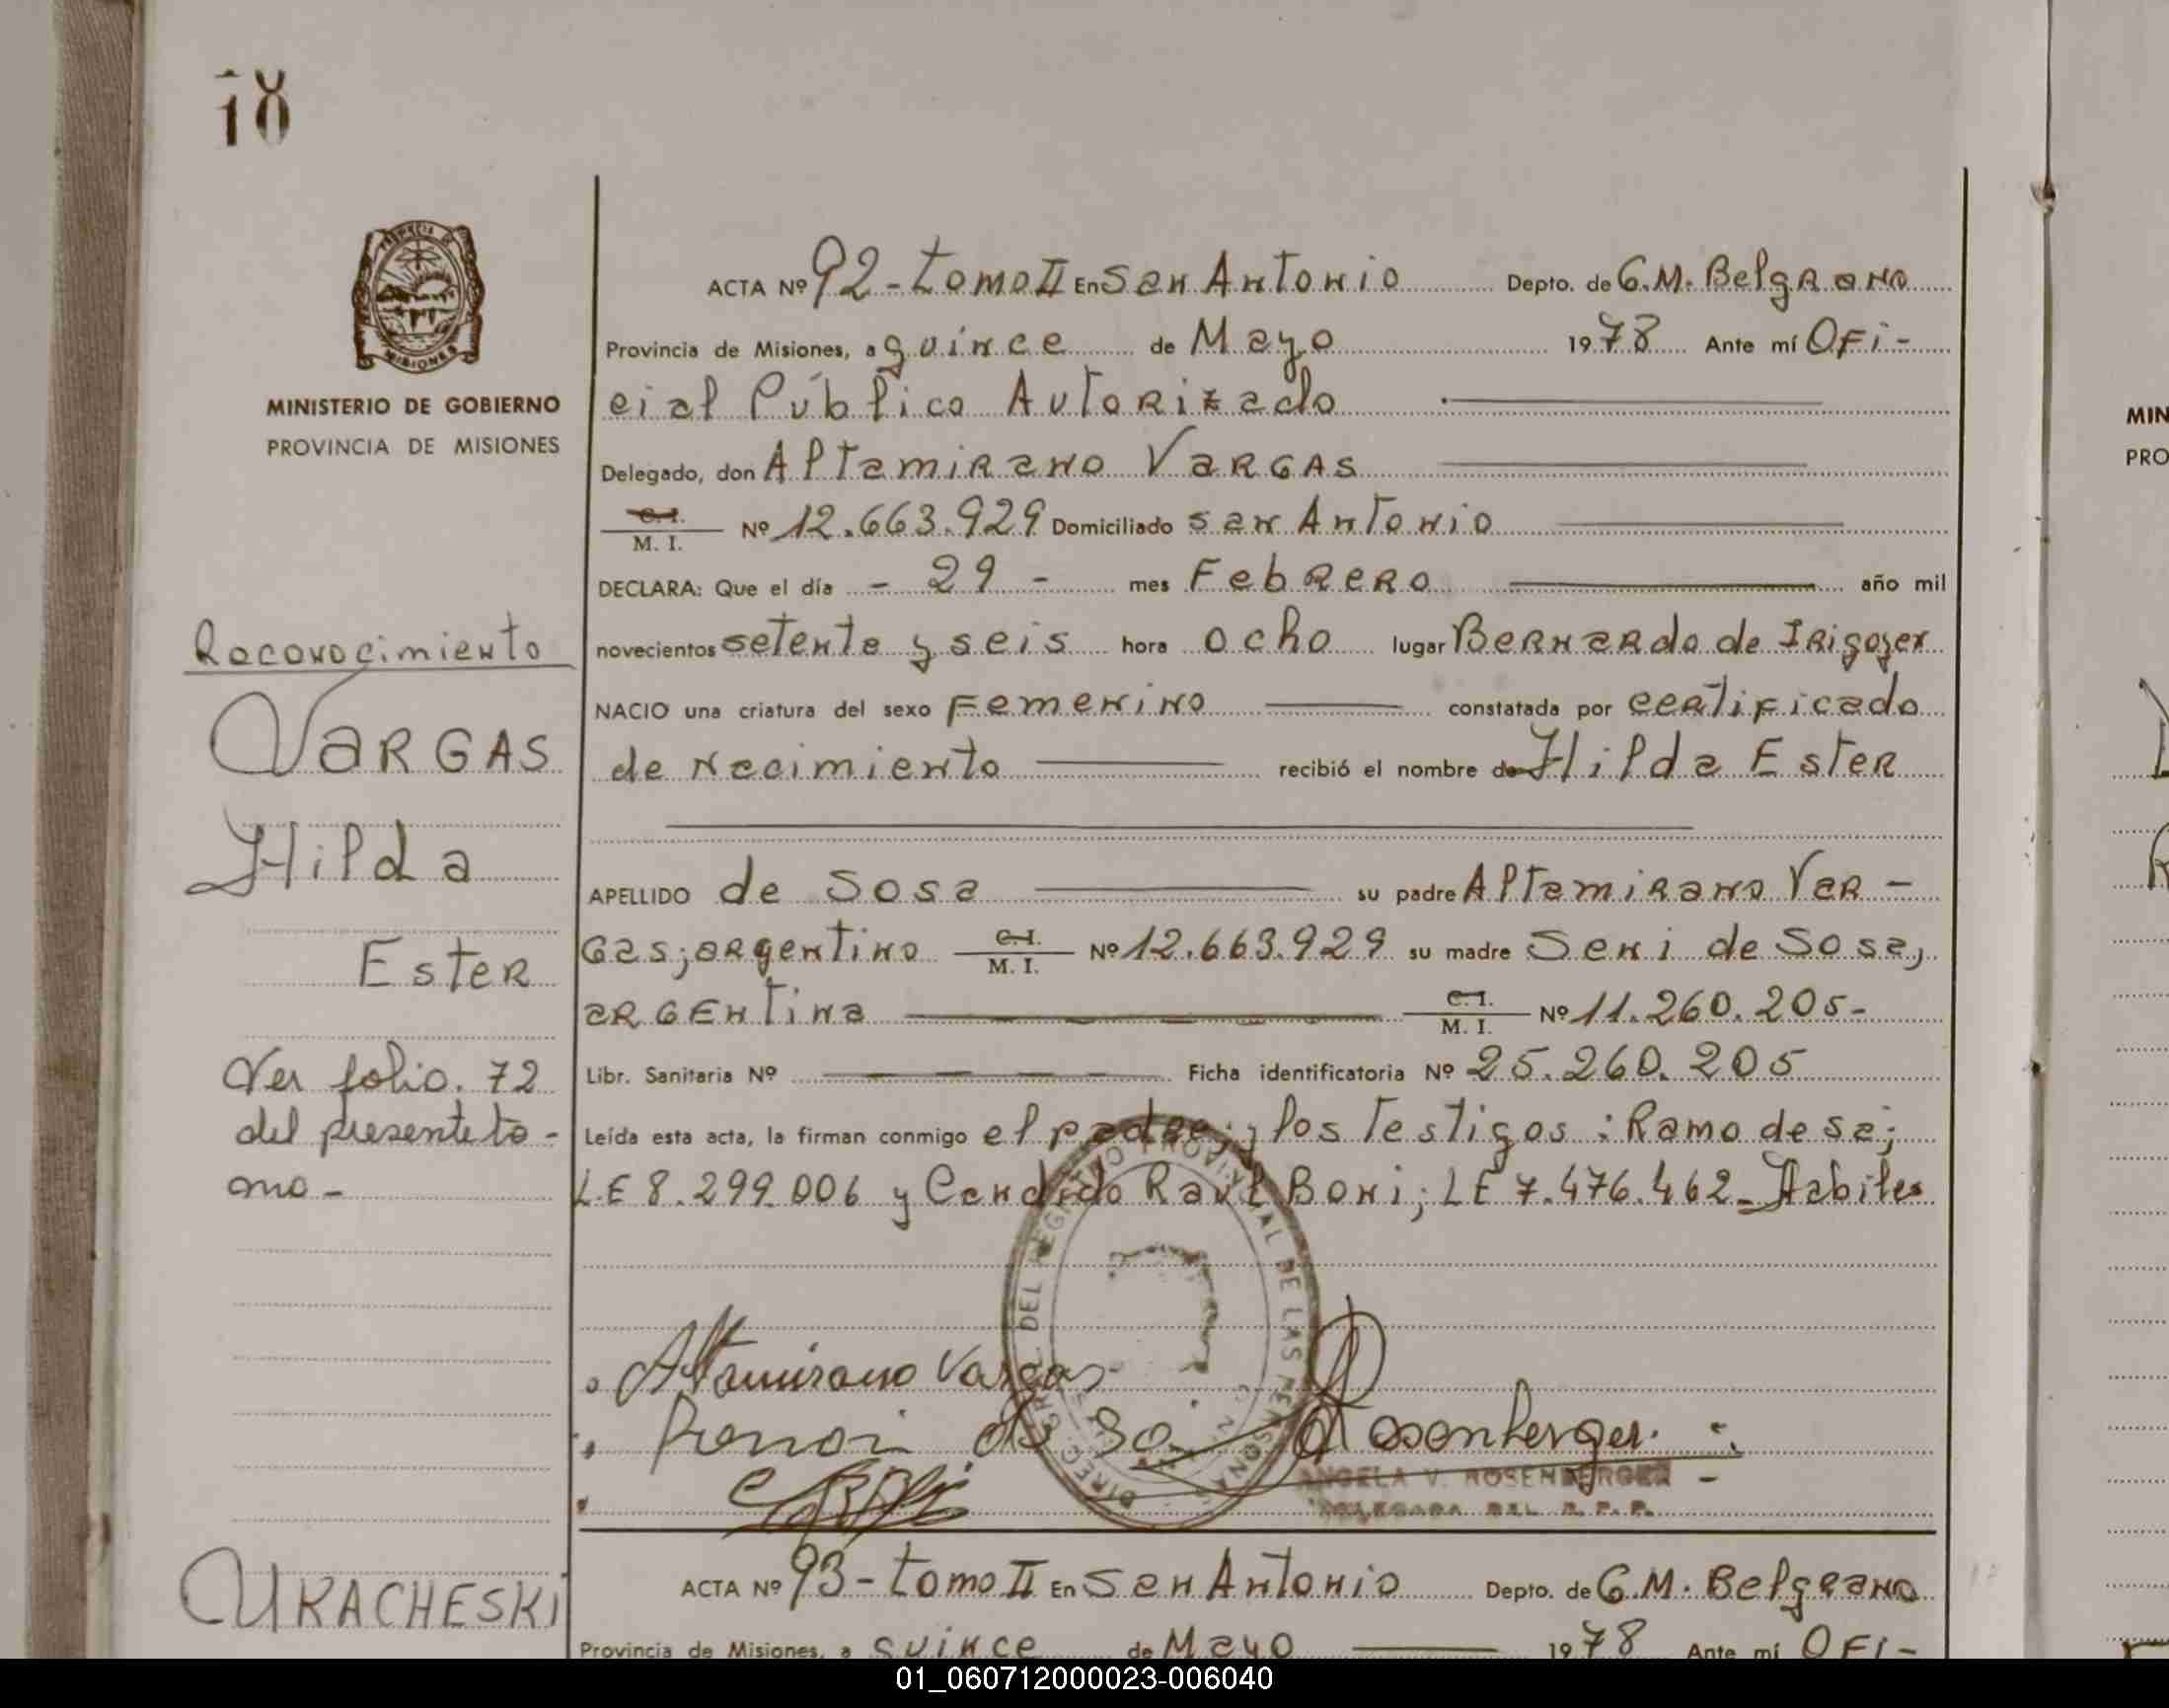 18
PROVINCIA DE
MISIONES
MINISTERIO DE GOBIERNO
PROVINCIA DE MISIONES
ACTA Nº 92 - tomo II En San Antonio Depto. de G.M. Belgrano
Provincia de Misiones, a quince de Mayo 1978 Ante mí Ofi-
cial Público Autorizado
Delegado, don Altamirano Vargas
C.I. / M. I. Nº 12.663.929 Domiciliado San Antonio
DECLARA: Que el día - 29 - mes Febrero año mil
novecientos setenta y seis hora ocho lugar Bernardo de Irigoyen
NACIO una criatura del sexo Femenino constatada por certificado
de nacimiento recibió el nombre de Hilda Ester
APELLIDO de Sosa su padre Altamirano Var-
gas; argentino C.I. / M. I. Nº 12.663.929 su madre Seni de Sosa,
argentina C.I. / M. I. Nº 11.260.205-
Libr. Sanitaria Nº Ficha identificatoria Nº 25.260.205
Leída esta acta, la firman conmigo el padre; y los testigos: Ramo de sa;
LE 8.299.006 y Candido Raul Boni; LE 7.476.462_ Habiles
Reconocimiento
VARGAS
Hilda
Ester
Ver folio. 72
del presente to-
mo -
Altamirano Vargas
Ramon de Sa
Rosenberger.
ANGELA V. ROSENBERGER
DELEGADA DEL R. P. P.
DIREC. GRAL. DEL REGISTRO PROVINCIAL DE LAS PERSONAS
URACHESKI
ACTA Nº 93 - tomo II En San Antonio Depto. de G.M. Belgrano
Provincia de Misiones, a quince de Mayo 1978 Ante mí Ofi-
MIN
PRO
01_060712000023-006040